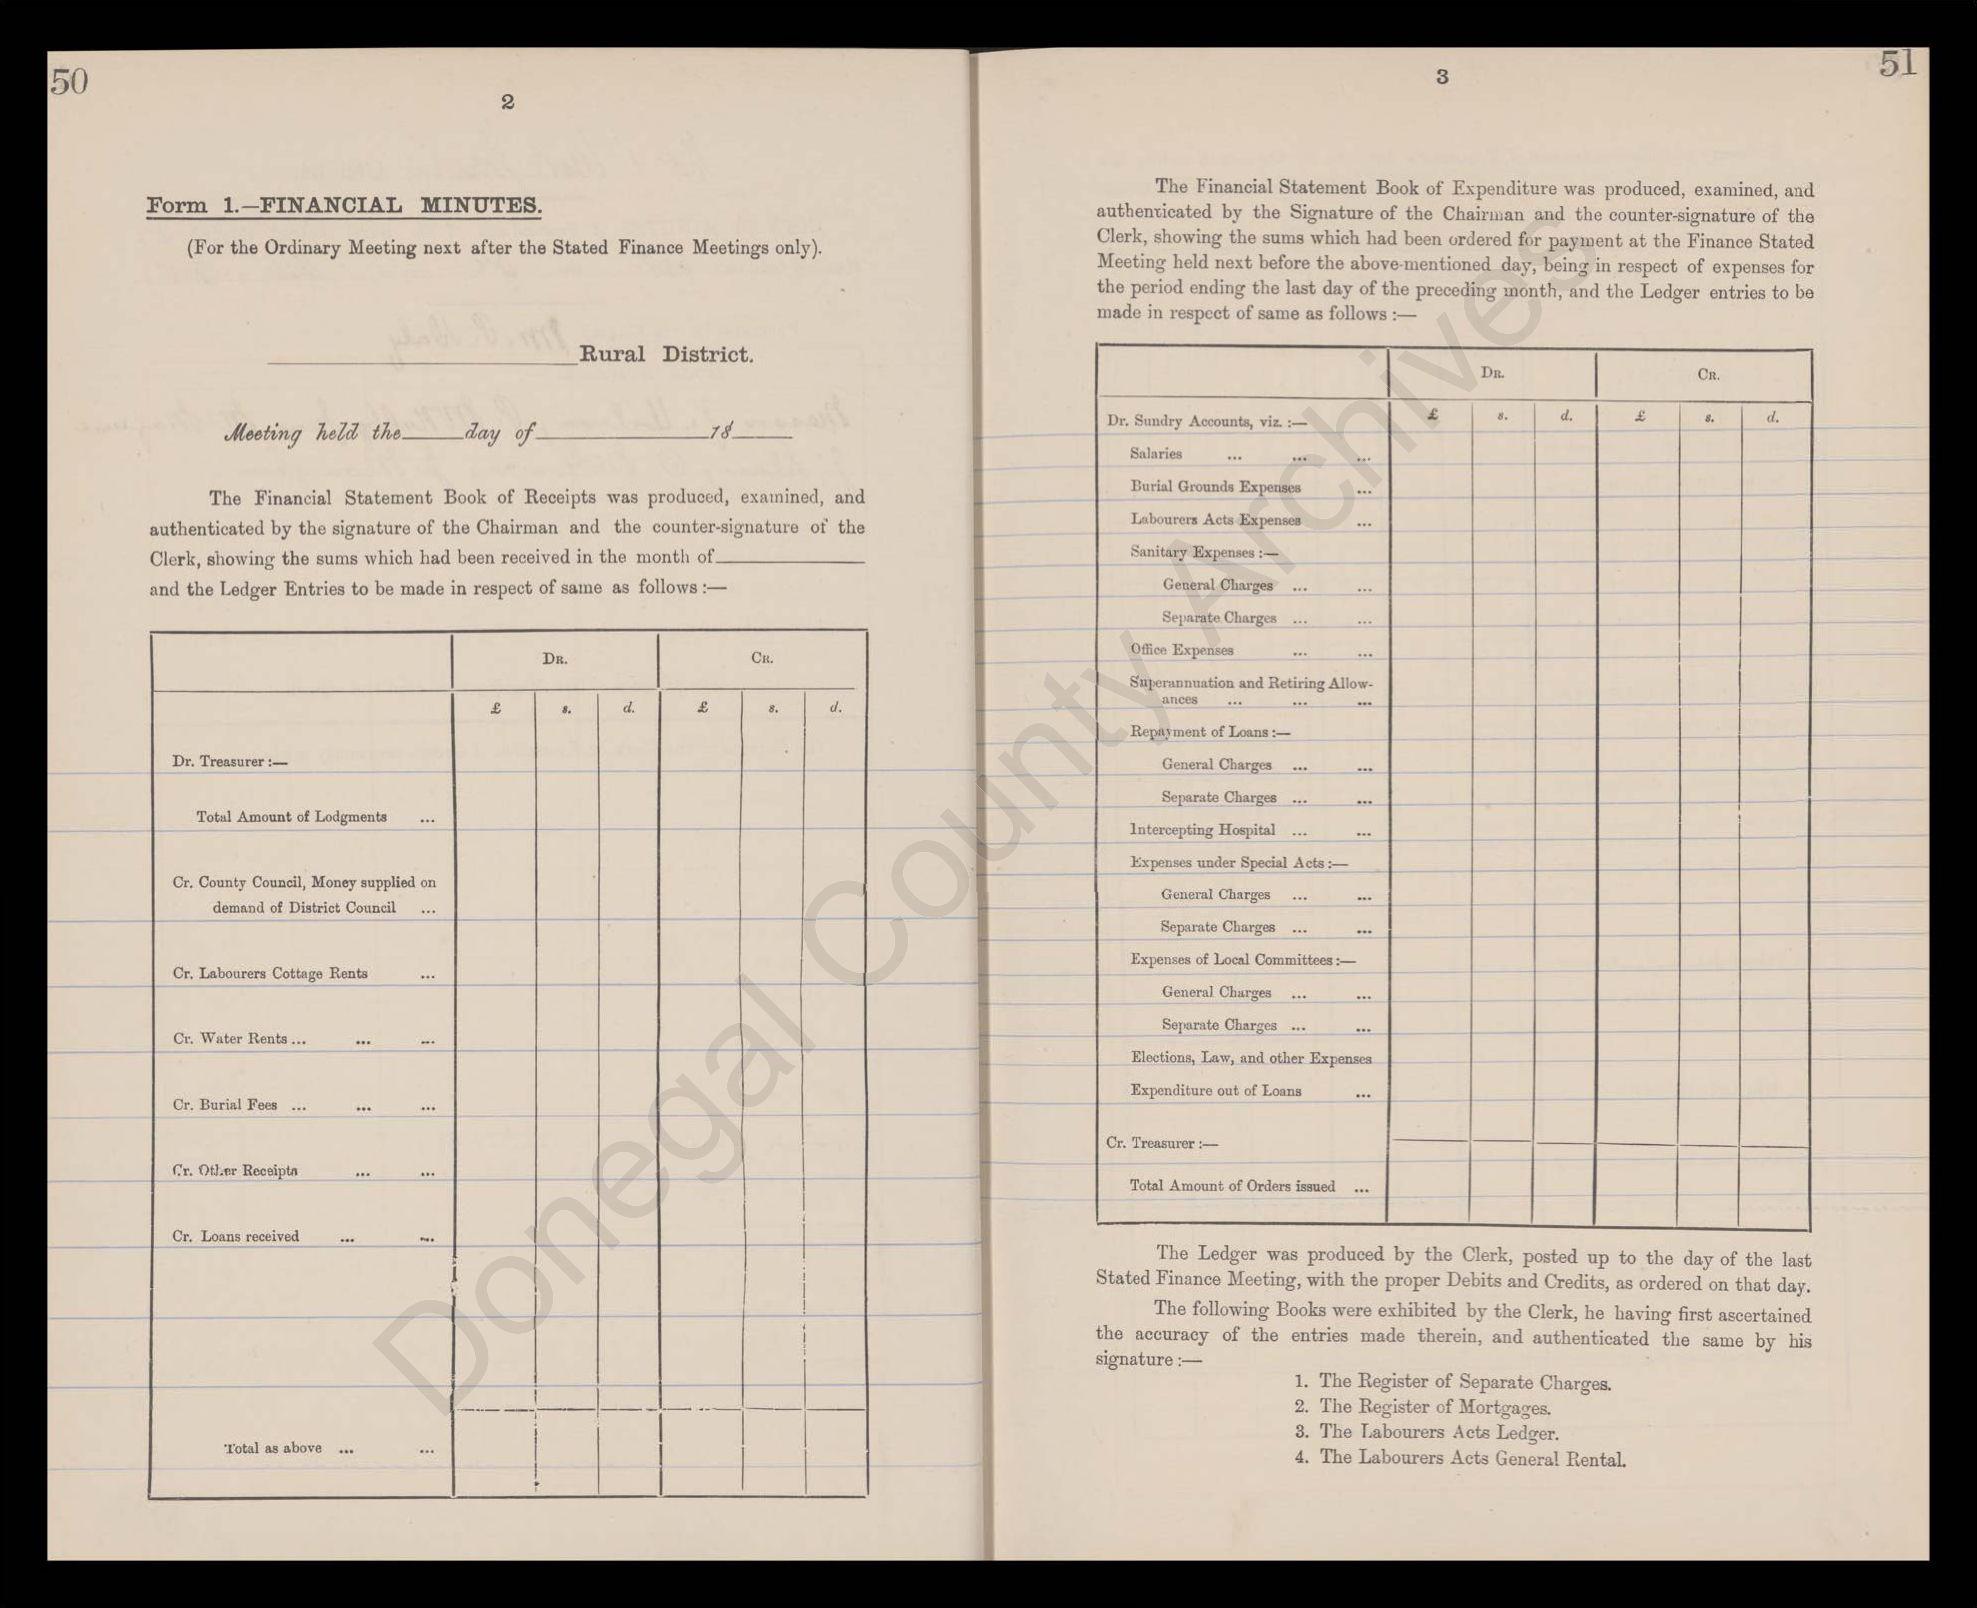 50
2
Form 1.—FINANCIAL MINUTES.
(For the Ordinary Meeting next after the Stated Finance Meetings only).
Rural District.
Meeting held the day of 18
The Financial Statement Book of Receipts was produced, examined, and
authenticated by the signature of the Chairman and the counter-signature of the
Clerk, showing the sums which had been received in the month of
and the Ledger Entries to be made in respect of same as follows :—
DR. CR.
£ s. d. £ s. d.
Dr. Treasurer :—
Total Amount of Lodgments ...
Cr. County Council, Money supplied on
demand of District Council ...
Cr. Labourers Cottage Rents ...
Cr. Water Rents ... ... ...
Cr. Burial Fees ... ... ...
Cr. Other Receipts ... ...
Cr. Loans received ... ...
Total as above ... ...
51
3
The Financial Statement Book of Expenditure was produced, examined, and
authenticated by the Signature of the Chairman and the counter-signature of the
Clerk, showing the sums which had been ordered for payment at the Finance Stated
Meeting held next before the above-mentioned day, being in respect of expenses for
the period ending the last day of the preceding month, and the Ledger entries to be
made in respect of same as follows :—
DR. CR.
£ s. d. £ s. d.
Dr. Sundry Accounts, viz. :—
Salaries ... ... ...
Burial Grounds Expenses ...
Labourers Acts Expenses ...
Sanitary Expenses :—
General Charges ... ...
Separate Charges ... ...
Office Expenses ... ...
Superannuation and Retiring Allow-
ances ... ... ...
Repayment of Loans :—
General Charges ... ...
Separate Charges ... ...
Intercepting Hospital ... ...
Expenses under Special Acts :—
General Charges ... ...
Separate Charges ... ...
Expenses of Local Committees :—
General Charges ... ...
Separate Charges ... ...
Elections, Law, and other Expenses
Expenditure out of Loans ...
Cr. Treasurer :—
Total Amount of Orders issued ...
The Ledger was produced by the Clerk, posted up to the day of the last
Stated Finance Meeting, with the proper Debits and Credits, as ordered on that day.
The following Books were exhibited by the Clerk, he having first ascertained
the accuracy of the entries made therein, and authenticated the same by his
signature :—
1. The Register of Separate Charges.
2. The Register of Mortgages.
3. The Labourers Acts Ledger.
4. The Labourers Acts General Rental.
Donegal County Archives